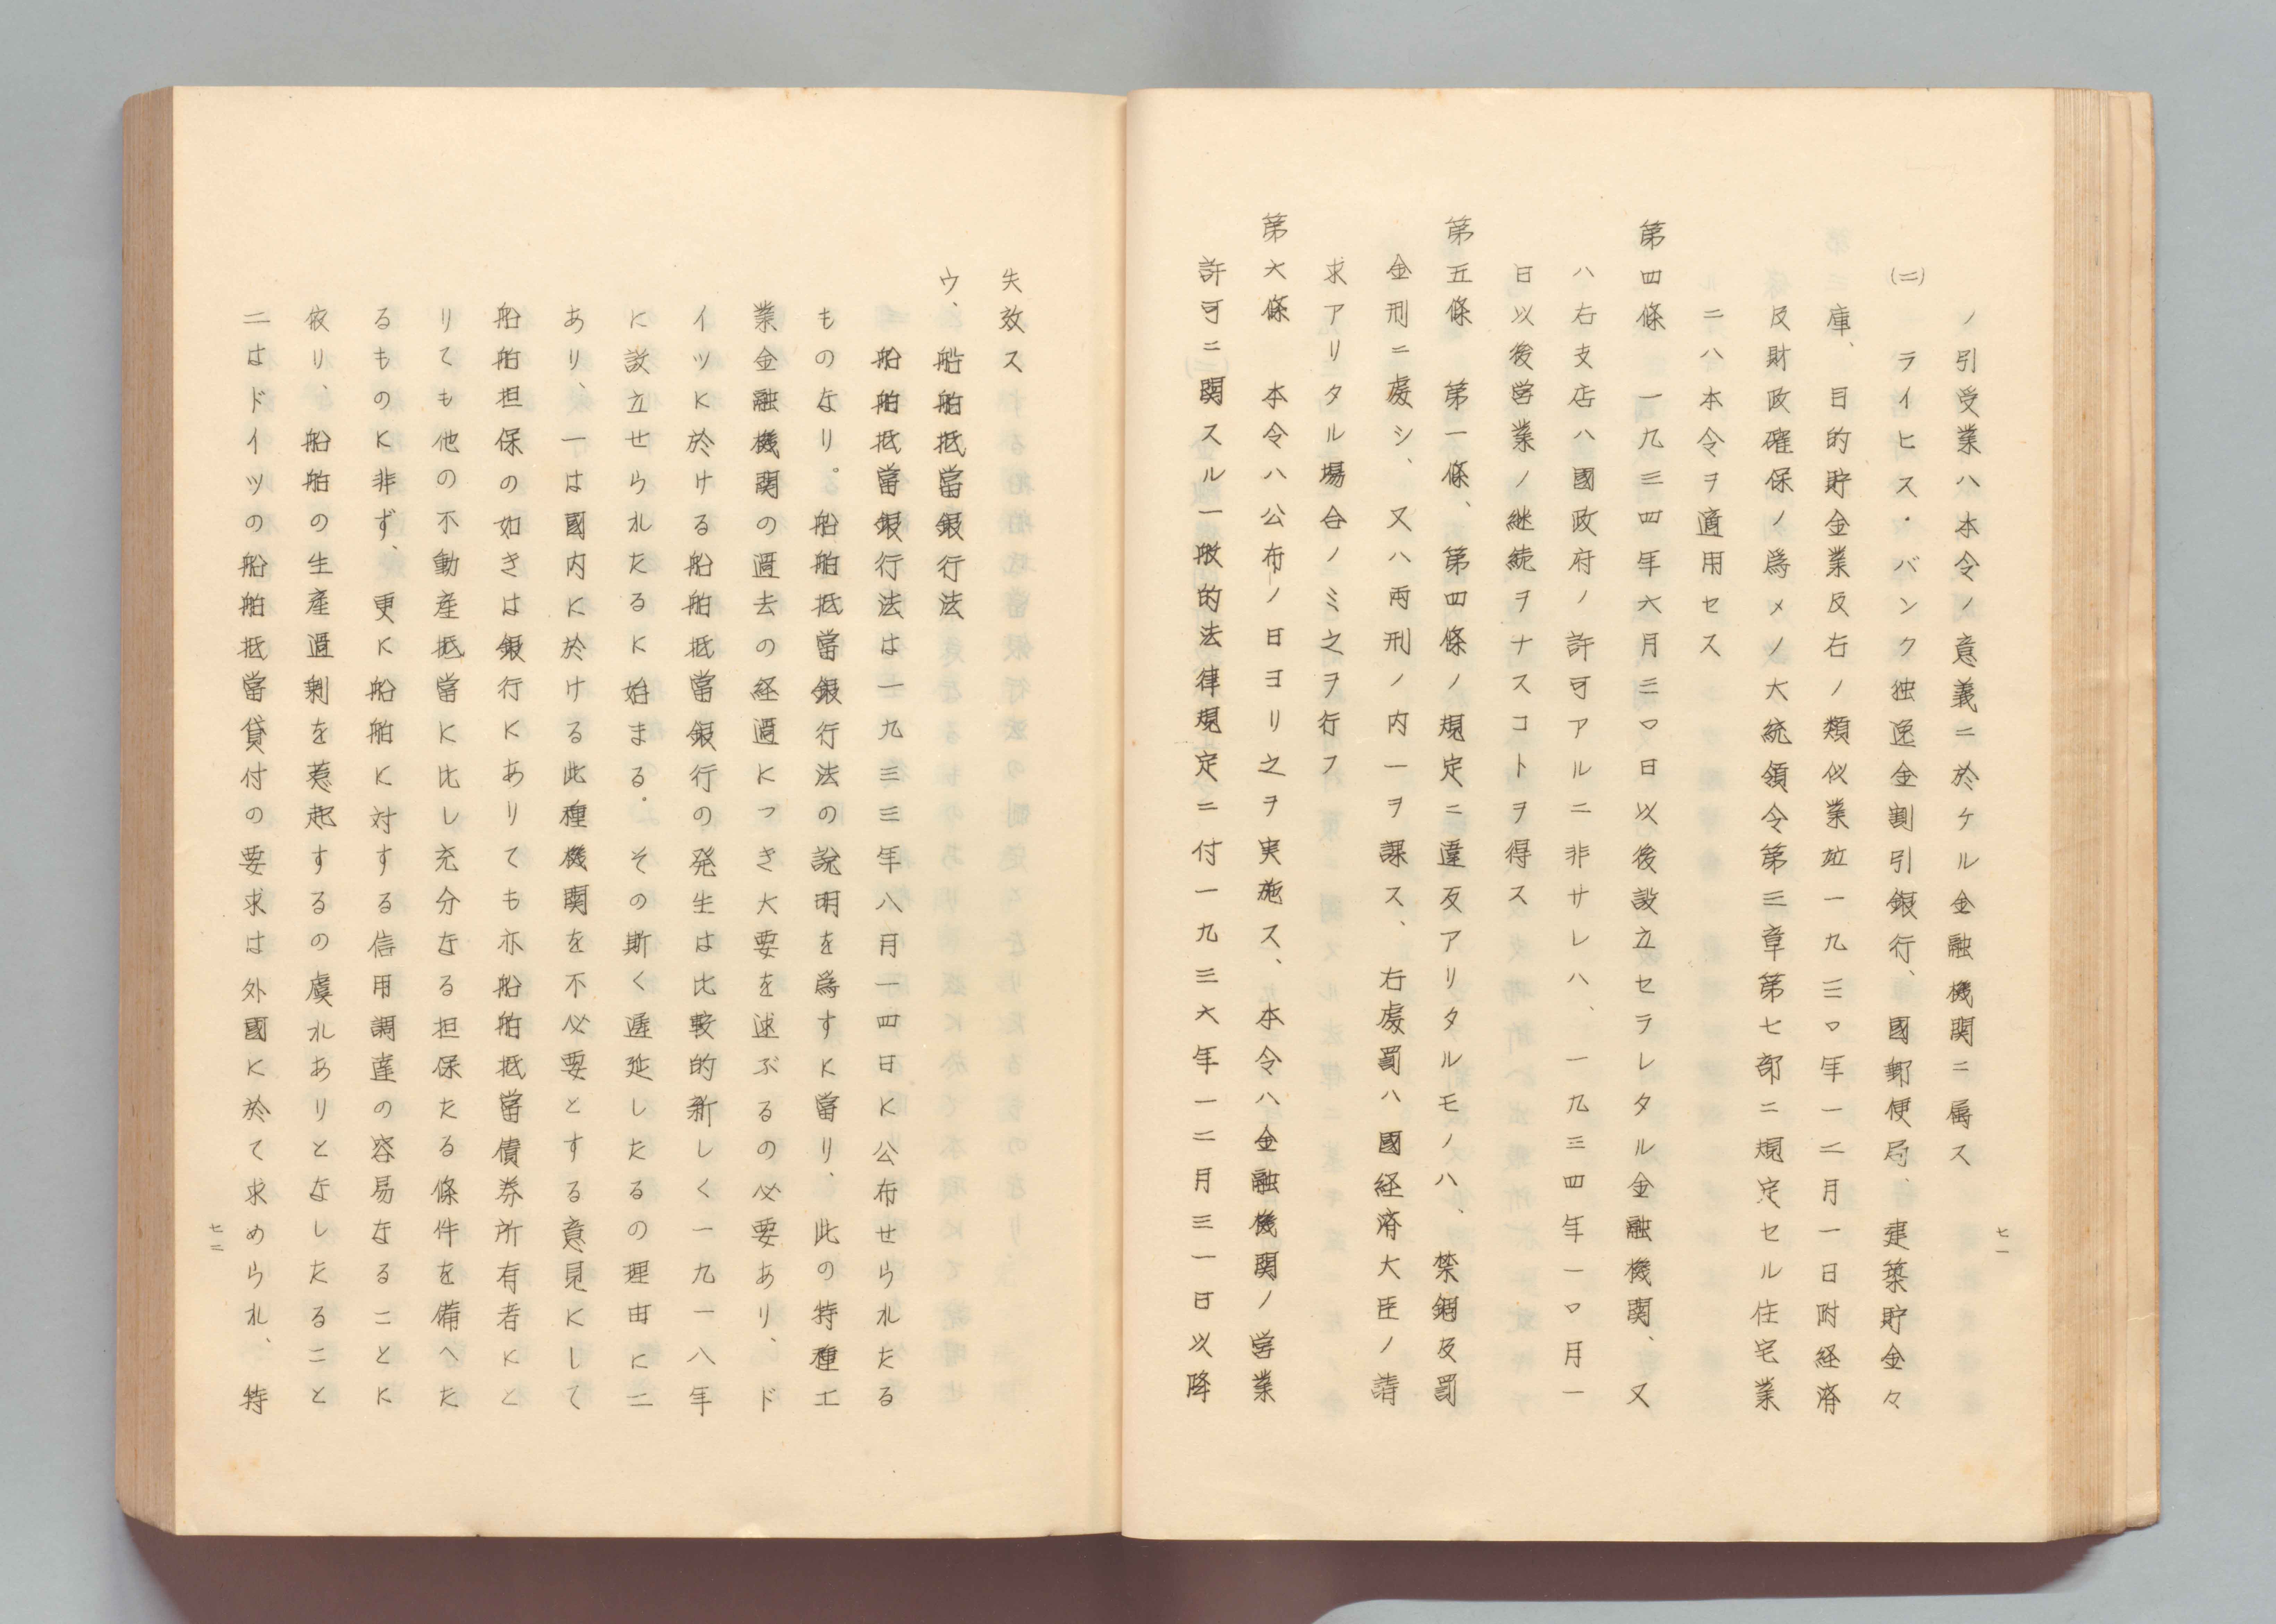 ノ引受業ハ本令ノ意義ニ於ケル金融機関ニ属ス
(二) ライヒス・バンク独逸金割引銀行、國郵便局、建築貯金々
庫、目的貯金業及右ノ類似業竝一九三〇年一二月一日附経済
及財政確保ノ爲メノ大統領令第三章第七部ニ規定セル住宅業
ニハ本令ヲ適用セス
第四條 一九三四年六月三〇日以後設立セラレタル金融機関、又
ハ右支店ハ國政府ノ許可アルニ非サレハ、一九三四年一〇月一
日以後営業ノ継続ヲナスコトヲ得ス
第五條 第一條、第四條ノ規定ニ違反アリタルモノハ、禁錮及罰
金刑ニ處シ、又ハ両刑ノ内一ヲ課ス、右處罰ハ國経済大臣ノ請
求アリタル場合ノミ之ヲ行フ
第六條 本令ハ公布ノ日ヨリ之ヲ実施ス、本令ハ金融機関ノ営業
許可ニ関スル一般的法律規定ニ付一九三六年一二月三一日以降
七一
失效ス
ウ、船舶抵當銀行法
船舶抵當銀行法は一九三三年八月一四日に公布せられたる
ものなり。船舶抵當銀行法の説明を爲すに當り、此の特種工
業金融機関の過去の経過につき大要を述ぶるの必要あり、ド
イツに於ける船舶抵當銀行の発生は比較的新しく一九一八年
に設立せられたるに始まる。その斯く遅延したるの理由に二
あり、一は國内に於ける此種機関を不必要とする意見にして
船舶担保の如きは銀行にありても亦船舶抵當債券所有者にと
りても他の不動産抵當に比し充分なる担保たる條件を備へた
るものに非ず、更に船舶に対する信用調達の容易なることに
依り、船舶の生産過剰を惹起するの虞れありとなしたること
二はドイツの船舶抵當貸付の要求は外國に於て求められ、特
七二